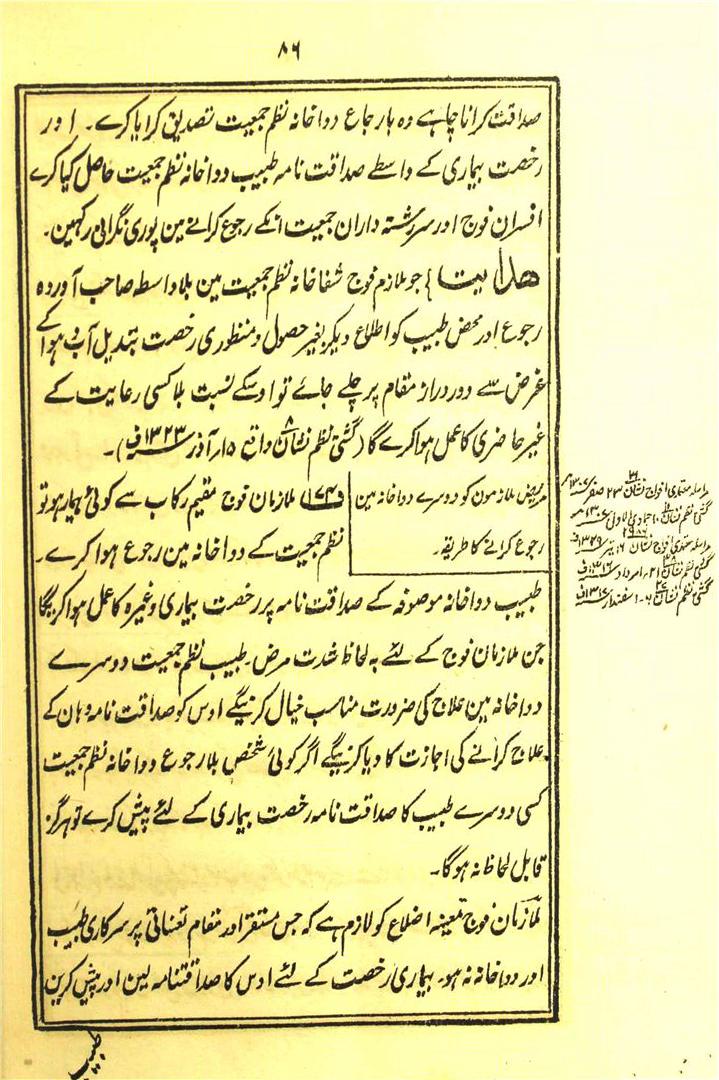 ۸۶
صداقت کرانا چاہے وہ بارجاع دواخانہ نظم جمعیت تصدیق کرایا کرے ۔ اور
رخصت بیماری کے واسطے صداقت نامہ طبیب دواخانہ نظم جمعیت حاصل کیا کرے
افسران فوج اور سررشتہ داران جمعیت انکے رجوع کرانے مین پوری نگرانی رکہین۔
ھدایت} جو ملازم فوج شفاخانہ نظم جمعیت مین بلا واسطہ صاحب آوردہ
رجوع اور محض طبیب کو اطلاع دیکر بغیر حصول و منظوری رخصت تبدیل آب و ہوا کے
غرض سے دور دراز مقام پر چلے جائے تو اوسکے نسبت بلا کسی رعایت کے
غیر حاضری کا عمل ہوا کرے گا (گشتی نظم نشان ۸ واقع ۱۵ر آذر ۱۳۲۳ف)۔
مریض ملازمون کو دوسرے دواخانہ مین
رجوع کرانے کا طریقہ ۔
ملازمان فوج مقیم رکاب سے کوئی بیمار ہو تو
نظم جمعیت کے دواخانہ مین رجوع ہوا کرے۔
طبیب دواخانہ موصوفہ کے صداقت نامہ پر رخصت بیماری وغیرہ کا عمل ہوا کریگا
جن ملازمان فوج کے لئے بہ لحاظ شدت مرض ۔ طبیب نظم جمعیت دوسرے
دواخانہ مین علاج کی ضرورت مناسب خیال کرینگے اوس کو صداقت نامہ وہان کے
علاج کرانے کی اجازت کا دیا کرینگے اگر کوئی شخص بلا رجوع دواخانہ نظم جمعیت
کسی دوسرے طبیب کا صداقت نامہ رخصت بیماری کے لئے پیش کرے تو ہرگز
قابل لحاظ نہ ہوگا ۔
ملازمان فوج متعینہ اضلاع کو لازم ہے کہ جس مستقر اور مقام تعیناتی پر سرکاری طبیب
اور دواخانہ نہ ہو ۔ بیماری رخصت کے لئے اوس کا صداقتنامہ لین اور پیش کرین
مراسلہ معتمدی افواج نشان ۲۳ صفر
گشتی نظم نشان جمادی الاول
مراسلہ معتمدی افواج نشان
گشتی نظم نشان ۲۱ ۔ امرداد ۱۳۱۶ف
گشتی نظم نشان ۶ ۔ اسفندار
طبیب